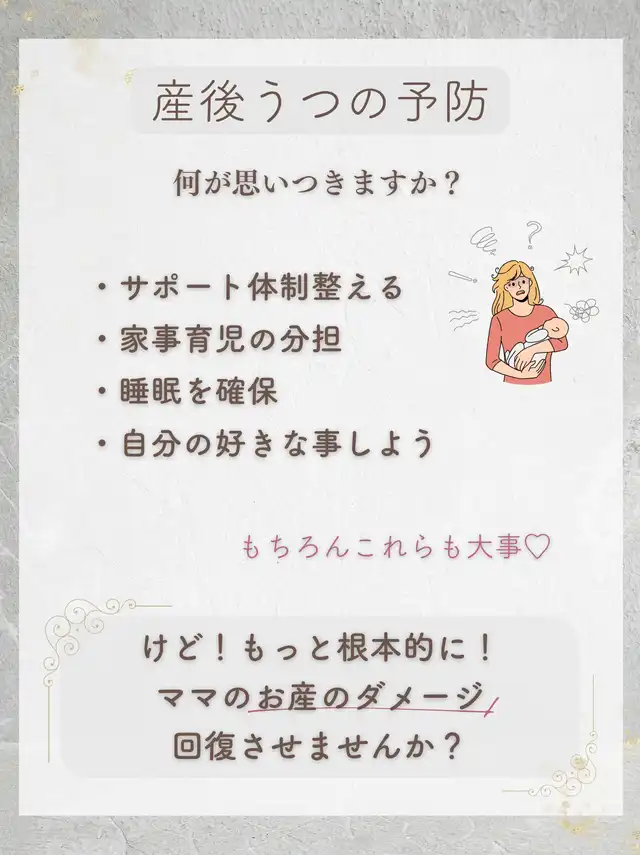 産後うつの予防
何が思いつきますか？
・サポート体制整える
・家事育児の分担
・睡眠を確保
・自分の好きな事しよう
もちろんこれらも大事♡
けど！もっと根本的に！
ママのお産のダメージ
回復させませんか？